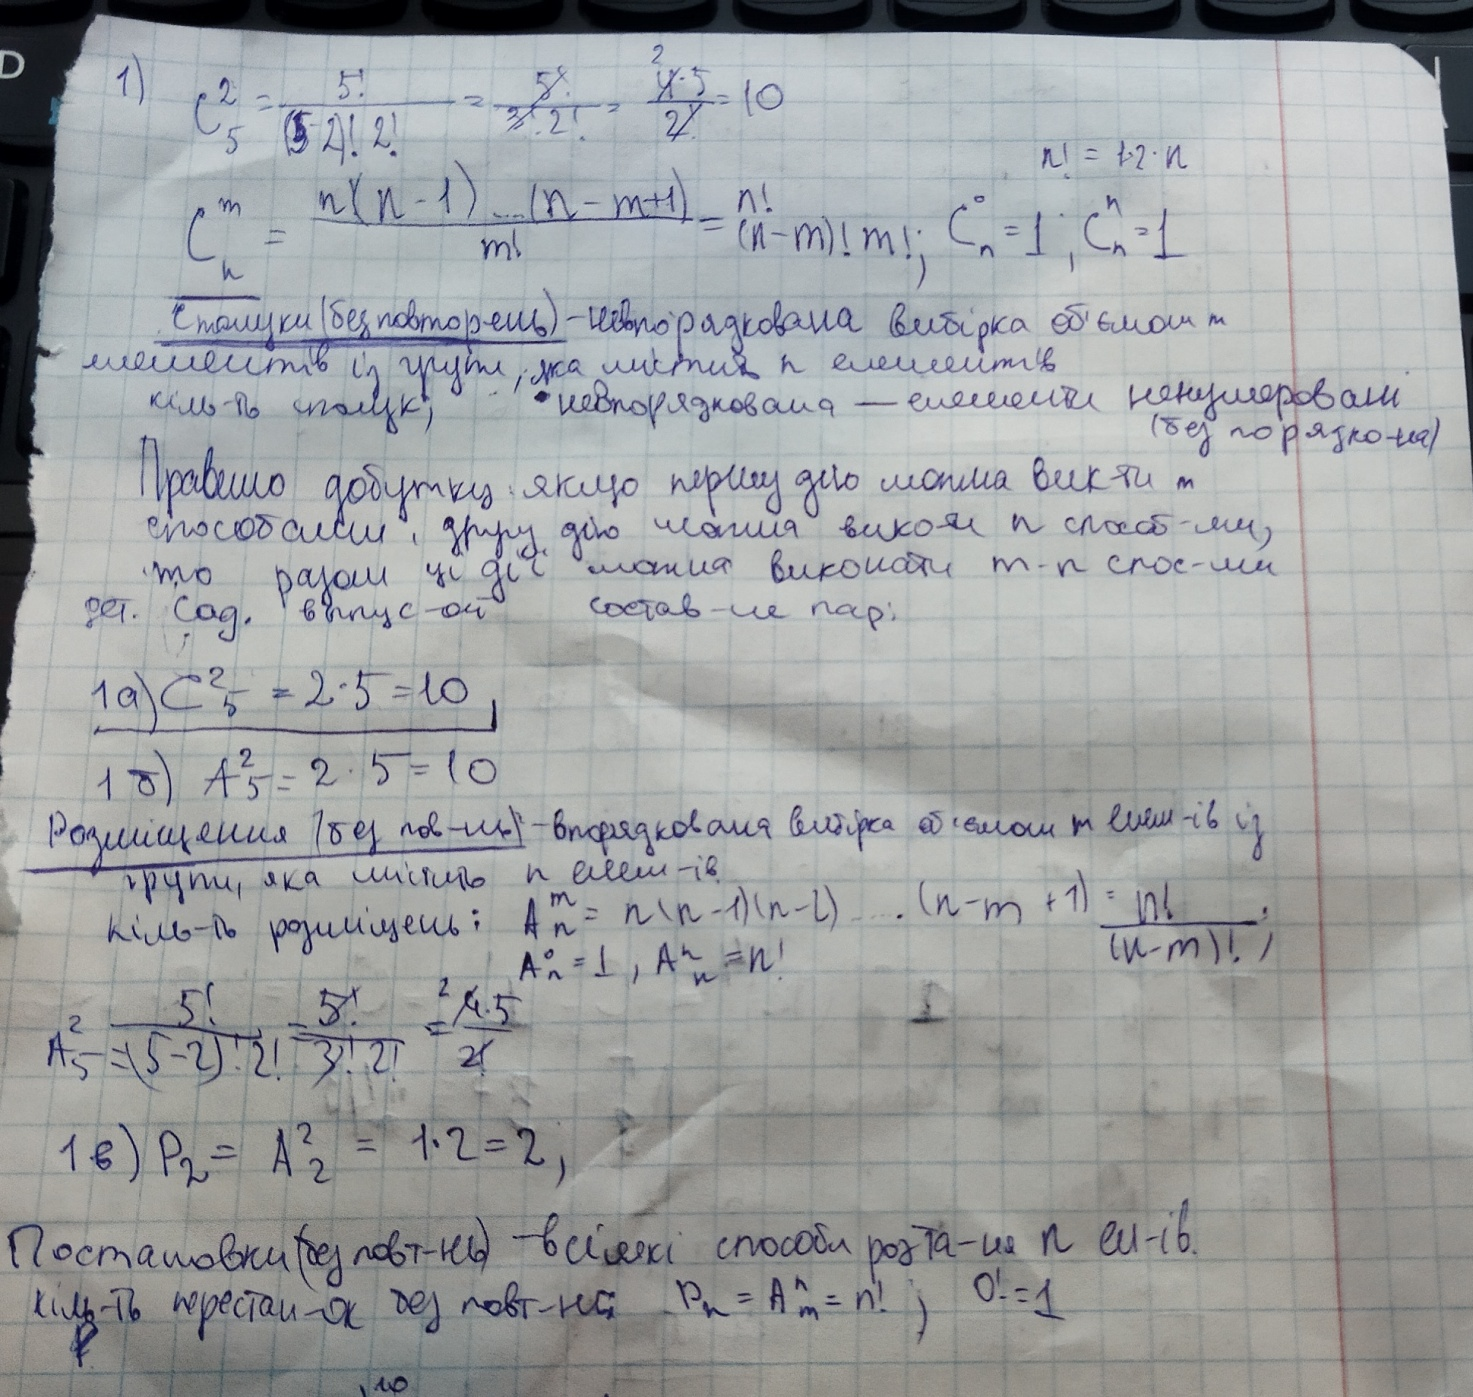 1) C₅² = 5!/((5-2)! 2!) = 5!/(3! · 2!) = 4·5/2! = 10
2
n! = 1·2·n
Cₙᵐ = n(n-1)...(n-m+1)/m! = n!/((n-m)! m!); Cₙ⁰ = 1; Cₙⁿ = 1
Сполуки (без повторень) - невпорядкована вибірка об'ємом m
елементів із групи, яка містить n елементів
кіль-ть сполук; невпорядкована — елементи ненумеровані
(без порядко-ня)
Правило добутку: якщо першу дію можна вик-ти m
способами, другу дію можна викон n способ-ми,
то разом ці дії можна виконати m-n спос-ми
дет. Сад. выпус-ой состав-ие пар:
1а) C₅² = 2·5 = 10
1б) A₅² = 2·5 = 10
Розміщення (без пов-нь) - впорядкована вибірка об'ємом m елем-ів із
групи, яка містить n елем-ів
кіль-ть розміщень: Aₙᵐ = n(n-1)(n-2) .... (n-m+1) = n!/(n-m)!;
Aₙ⁰ = 1, Aₙⁿ = n!
A₅² = 5!/((5-2)! 2!) = 5!/(3! 2!) = 4·5/2!
2
1в) P₂ = A₂² = 1·2 = 2;
Постановки (без повт-нь) - всілякі способи розта-ня n ел-ів.
кіль-ть перестан-ок без повт-нь Pₙ = Aₘⁿ = n!; 0! = 1